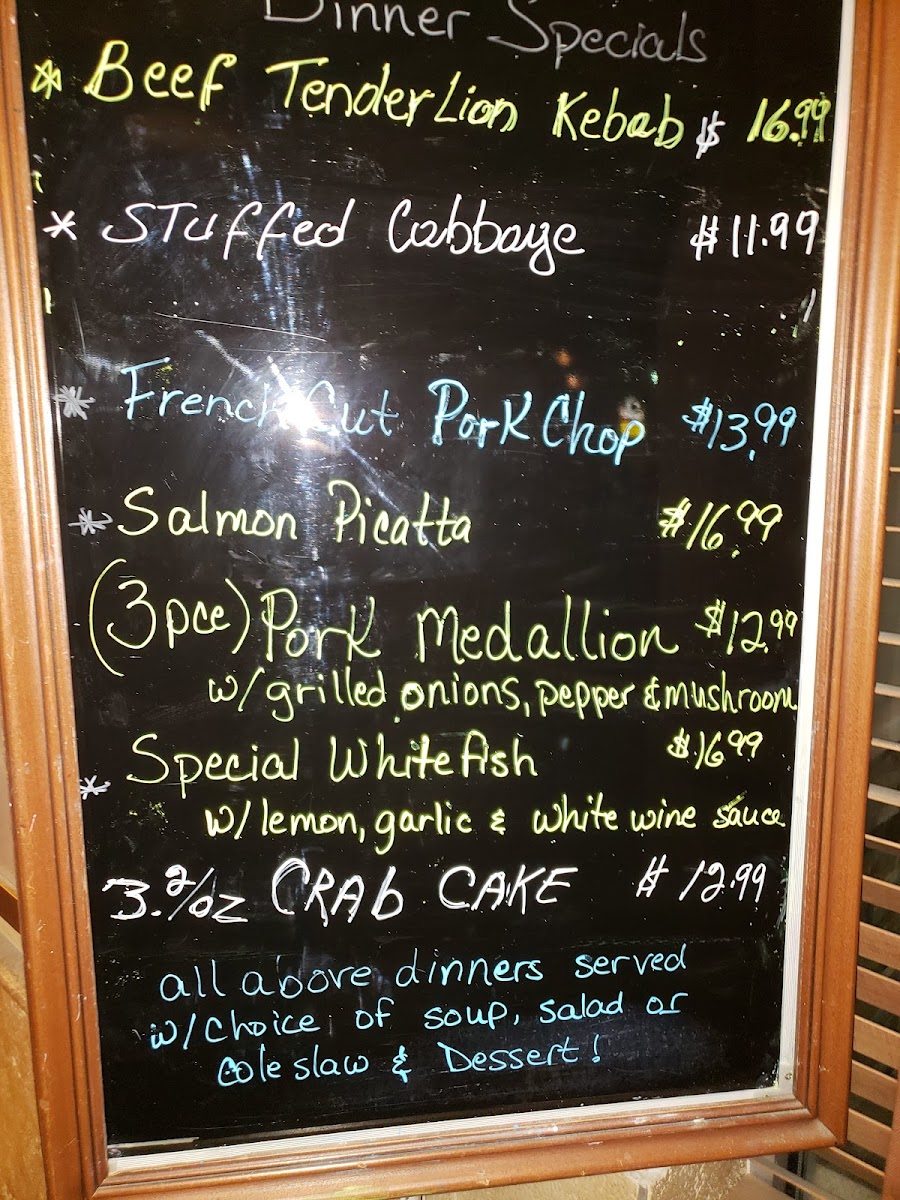 Dinner Specials
* Beef TenderLion Kebab $ 16.99
* Stuffed Cabbage $11.99
* French Cut Pork Chop $13.99
* Salmon Picatta $16.99
(3pce) Pork Medallion $12.99
w/grilled onions, pepper & mushroom
* Special Whitefish $16.99
w/ lemon, garlic & white wine sauce
CRAb CAKE $ 12.99
all above dinners served
w/choice of soup, salad or
coleslaw & Dessert!